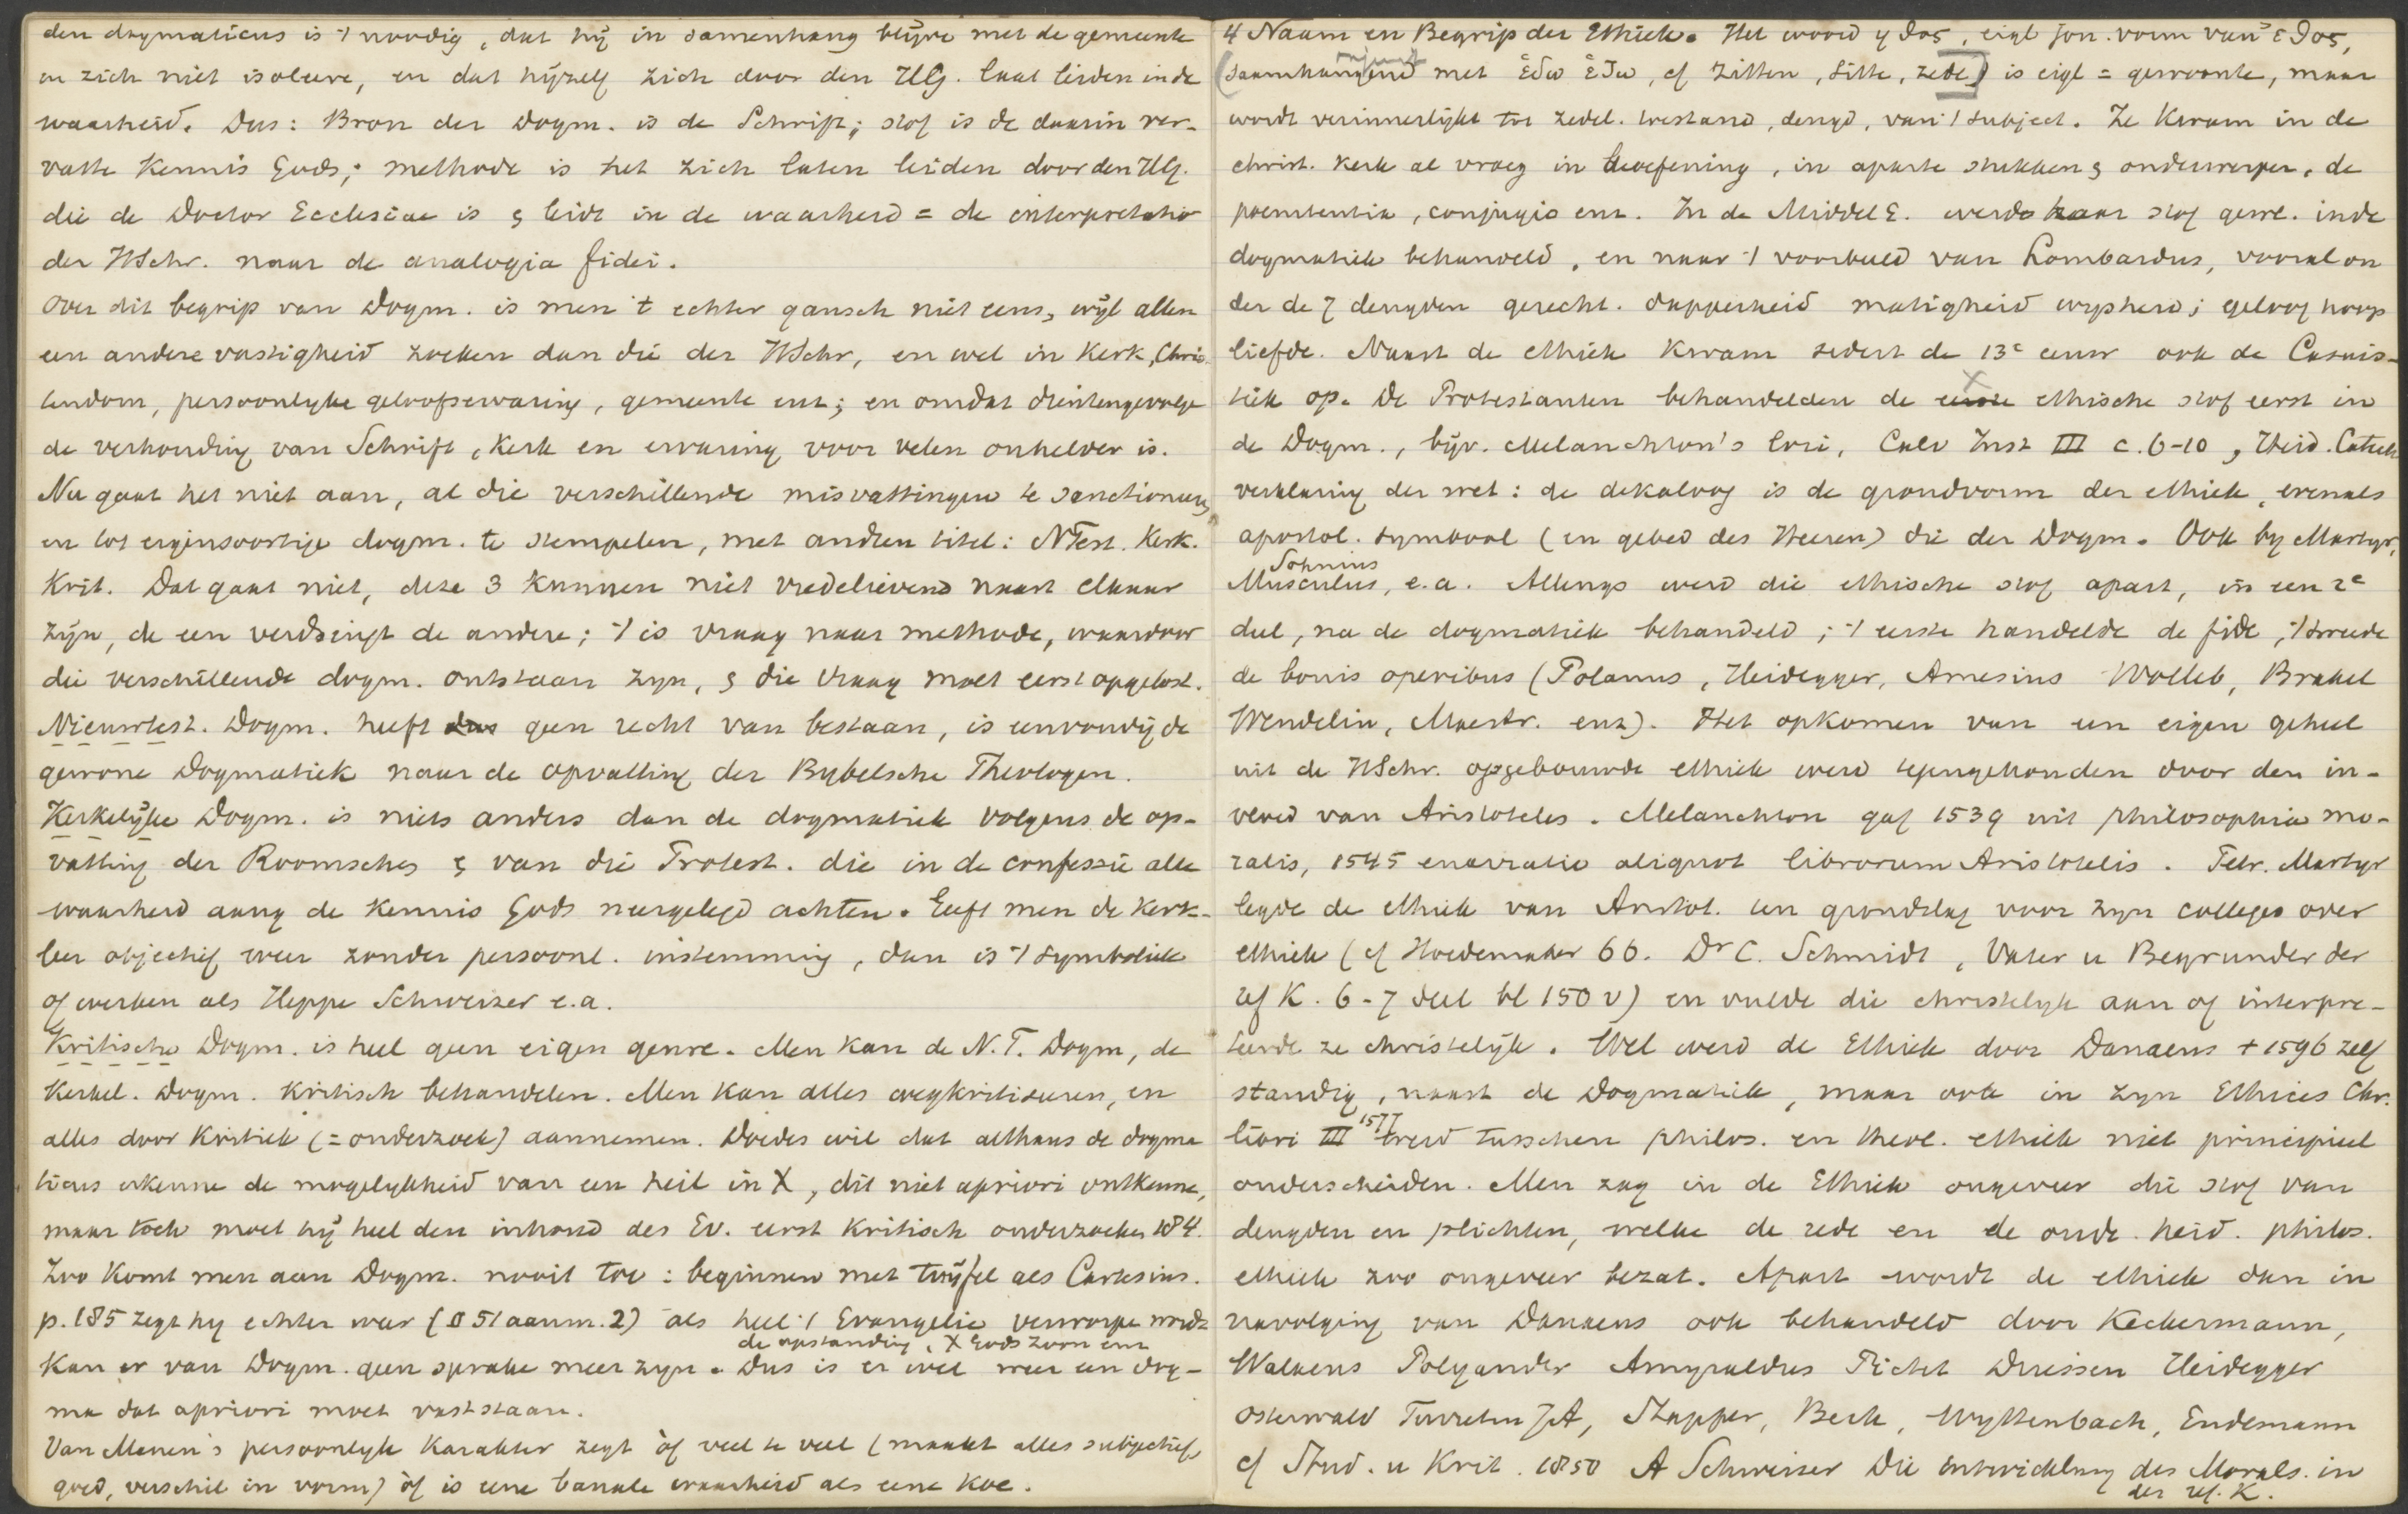 den dogmaticus is 't noodig, dat hij in samenhang blijve met de gemeente
en zich niet isoleere, en dat hijzelf zich door den HG. laat leiden in de
waarheid. Dus: Bron der Dogm. is de Schrift; stof is de daarin ver-
vatte Kennis Gods; methode is het zich laten leiden door den HG.
die de Doctor Ecclesiae is & leidt in de waarheid = de interpretatio
der HSchr. naar de analogia fidei.
Over dit begrip van Dogm. is men 't echter gansch niet eens, wijl allen
een andere vastigheid zoeken dan die der HSchr, en wel in Kerk, Chris-
tendom, persoonlyke geloofservaring, gemeente enz; en omdat dientengevolge
de verhouding van Schrift, Kerk en ervaring voor velen onhelder is.
Nu gaat het niet aan, al die verschillende misvattingen te sanctioneeren
en tot eigensoortige dogm. te stempelen, met andren titel: NTest. Kerk.
Krit. Dat gaat niet, deze 3 kunnen niet vredelievend naast elkaar
zijn, de een verdringt de andere; 't is vraag naar methode, waardoor
die verschillende dogm. ontstaan zyn, & die vraag moet eerst opgelost.
Nieuwtest. Dogm. heeft dus geen recht van bestaan, is eenvoudig de
gewone Dogmatiek naar de opvatting der Bybelsche Theologen.
Kerkelijke Dogm. is niets anders dan de dogmatiek volgens de op-
vatting der Roomschen & van die Protest. die in de confessie alle
waarheid aang de kennis Gods neergelegd achten. Geeft men de kerk-
leer objectief weer zonder persoonl. instemming, dan is 't symboliek
of werken als Heppe Schweizer e.a.
Kritische Dogm. is heel geen eigen genre. Men kan de N.T. Dogm, de
Kerkel. Dogm. Kritisch behandelen. Men kan alles wegkritiseeren, en
alles door Kritiek (= onderzoek) aannemen. Doedes wil dat althans de dogma
ticus erkenne de mogelykheid van een heil in X, dit niet apriori ontkenne,
maar toch moet hij heel den inhoud des Ev. eerst Kritisch onderzoeken 184.
Zoo komt men aan Dogm. nooit toe: beginnen met twijfel als Cartesius.
p. 185 zegt hy echter weer (§ 51 aanm. 2) als heel 't Evangelie verworpen wordt
de opstanding, X Gods Zoon enz
Kan er van Dogm. geen sprake meer zyn. Dus is er wel weer een dog-
ma dat apriori moet vaststaan.
Van Manen's persoonlyk Karakter zegt òf veel te veel (maakt alles subjectief
goed, verschil in vorm) òf is eene banale waarheid als eene koe.
4 Naam en Begrip der Ethiek. Het woord ἠθος, eigl jon. vorm van ἐθος,
(saamhangend met ἑδω ἑζω, cf zitten, Sitte, zede) is eigl = gewoonte, maar
wordt verinnerlijkt tot zedel. toestand, deugd, van 't subject. Ze kwam in de
christ. kerk al vroeg in beoefening, in aparte stukken & onderwerpen, de
poenitentia, conjugio enz. In de MiddelE. werd haar stof gewl. in de
dogmatiek behandeld, en naar 't voorbeeld van Lombardus, vooral on
der de 7 deugden gerecht. dapperheid matigheid wysheid; geloof hoop
liefde. Naast de ethiek kwam sedert de 13e eeuw ook de Casuis-
tiek op. De Protestanten behandelden de ethische stof eerst in
de Dogm., bijv. Melanchton's loci, Calv Inst III c. 6-10, Heid. Catech
verklaring der wet: de dekaloog is de grondvorm der ethiek, evenals
apostol. symbool (en gebed des Heeren) die der Dogm. Ook by Martyr,
Sohnius
Musculus, e.a. Allengs werd die ethische stof apart, in een 2e
deel, na de dogmatiek behandeld; 't eerste handelde de fide, 't tweede
de bonis operibus (Polanus, Heidegger, Amesius Wolleb, Brakel
Wendelin, Maestr. enz). Het opkomen van een eigen geheel
uit de HSchr. opgebouwde ethiek werd tegengehouden door den in-
vloed van Aristoteles. Melanchton gaf 1539 uit philosophia mo-
ralis, 1545 enarratio aliquot librorum Aristotelis. Petr. Martyr
legde de ethiek van Aristot. ten grondslag voor zyn colleges over
ethiek (cf Hoedemaker 66. Dr C. Schmidt, Vater u Begrunder der
ref K. 6-7 deel bl 150 v) en vulde die christelyk aan of interpre-
teerde ze christelijk. Wel werd de Ethiek door Danaeus + 1596 zelf
standig, naast de Dogmatiek, maar ook in zyn Ethices Chr.
libri III 1577 werd tusschen philos. en theol. ethiek niet principieel
onderscheiden. Men zag in de Ethiek ongeveer die stof van
deugden en plichten, welke de rede en de oude heid. philos.
ethiek zoo ongeveer bezat. Apart wordt de ethiek dan in
navolging van Danaeus ook behandeld door Keckermann,
Walaeus Polyander Amyraldus Pictet Driessen Heidegger
Osterwald Turretin JA, Stapfer, Beck, Wyttenbach, Endemann
cf Stud. u Krit. 1850 A Schweizer Die Entwicklung des Morals. in
der ref. K.